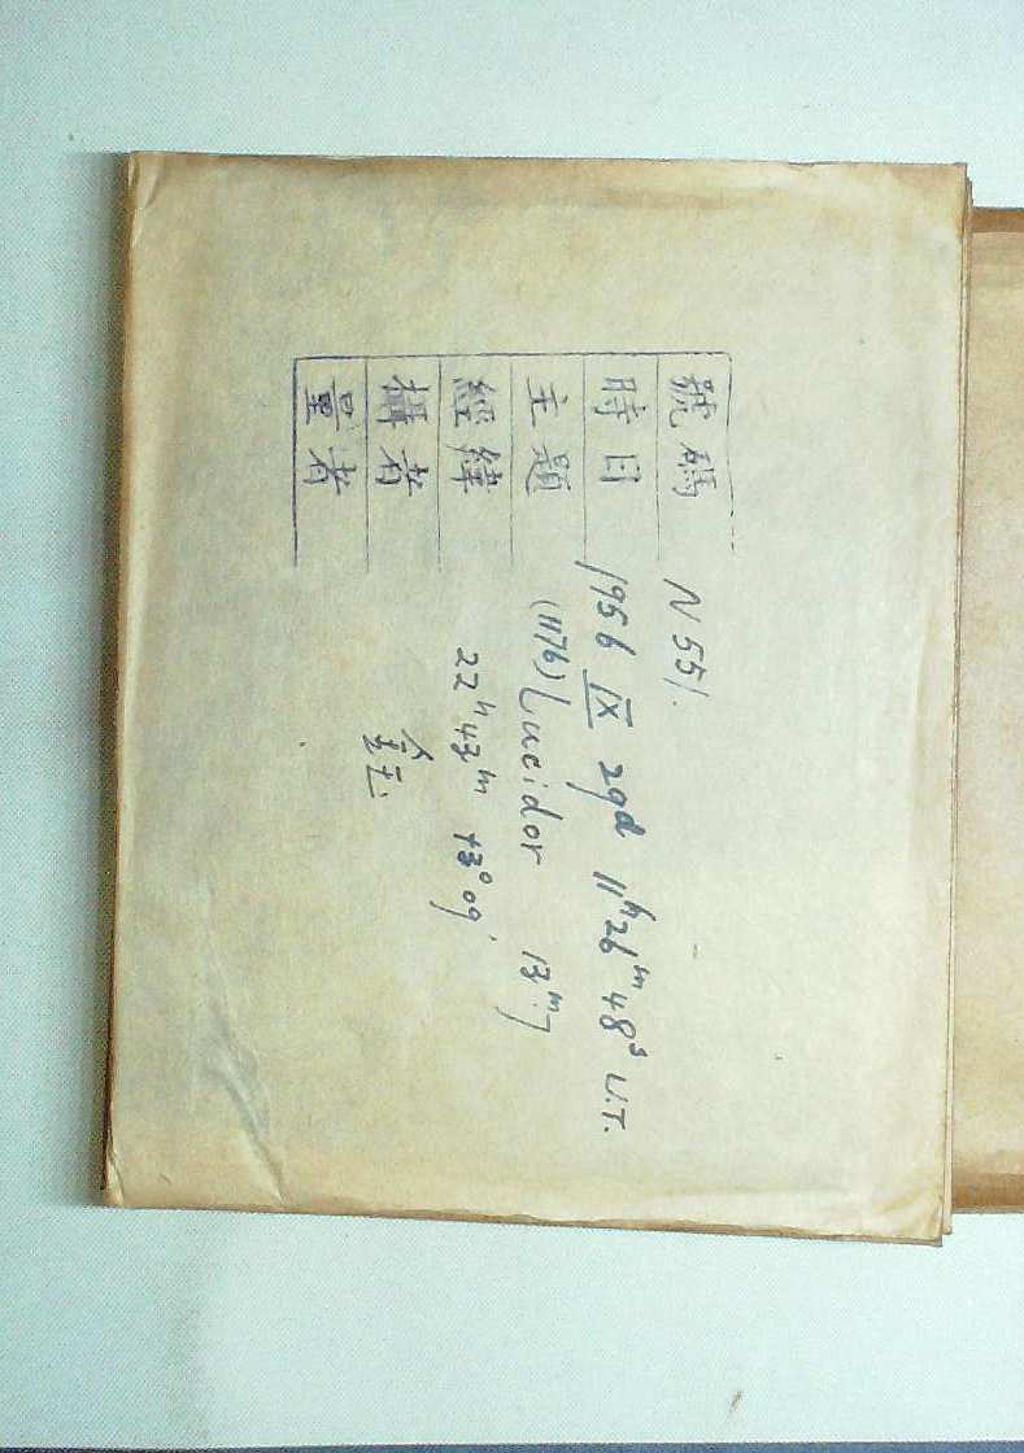 號碼 N 551.
時日 1956 IX 29d 11ʰ26ᵐ48ˢ U.T.
主題 (1176) Lucidor 13ᵐ.7
經緯 22ʰ43ᵐ +3°09'
攝者
量者